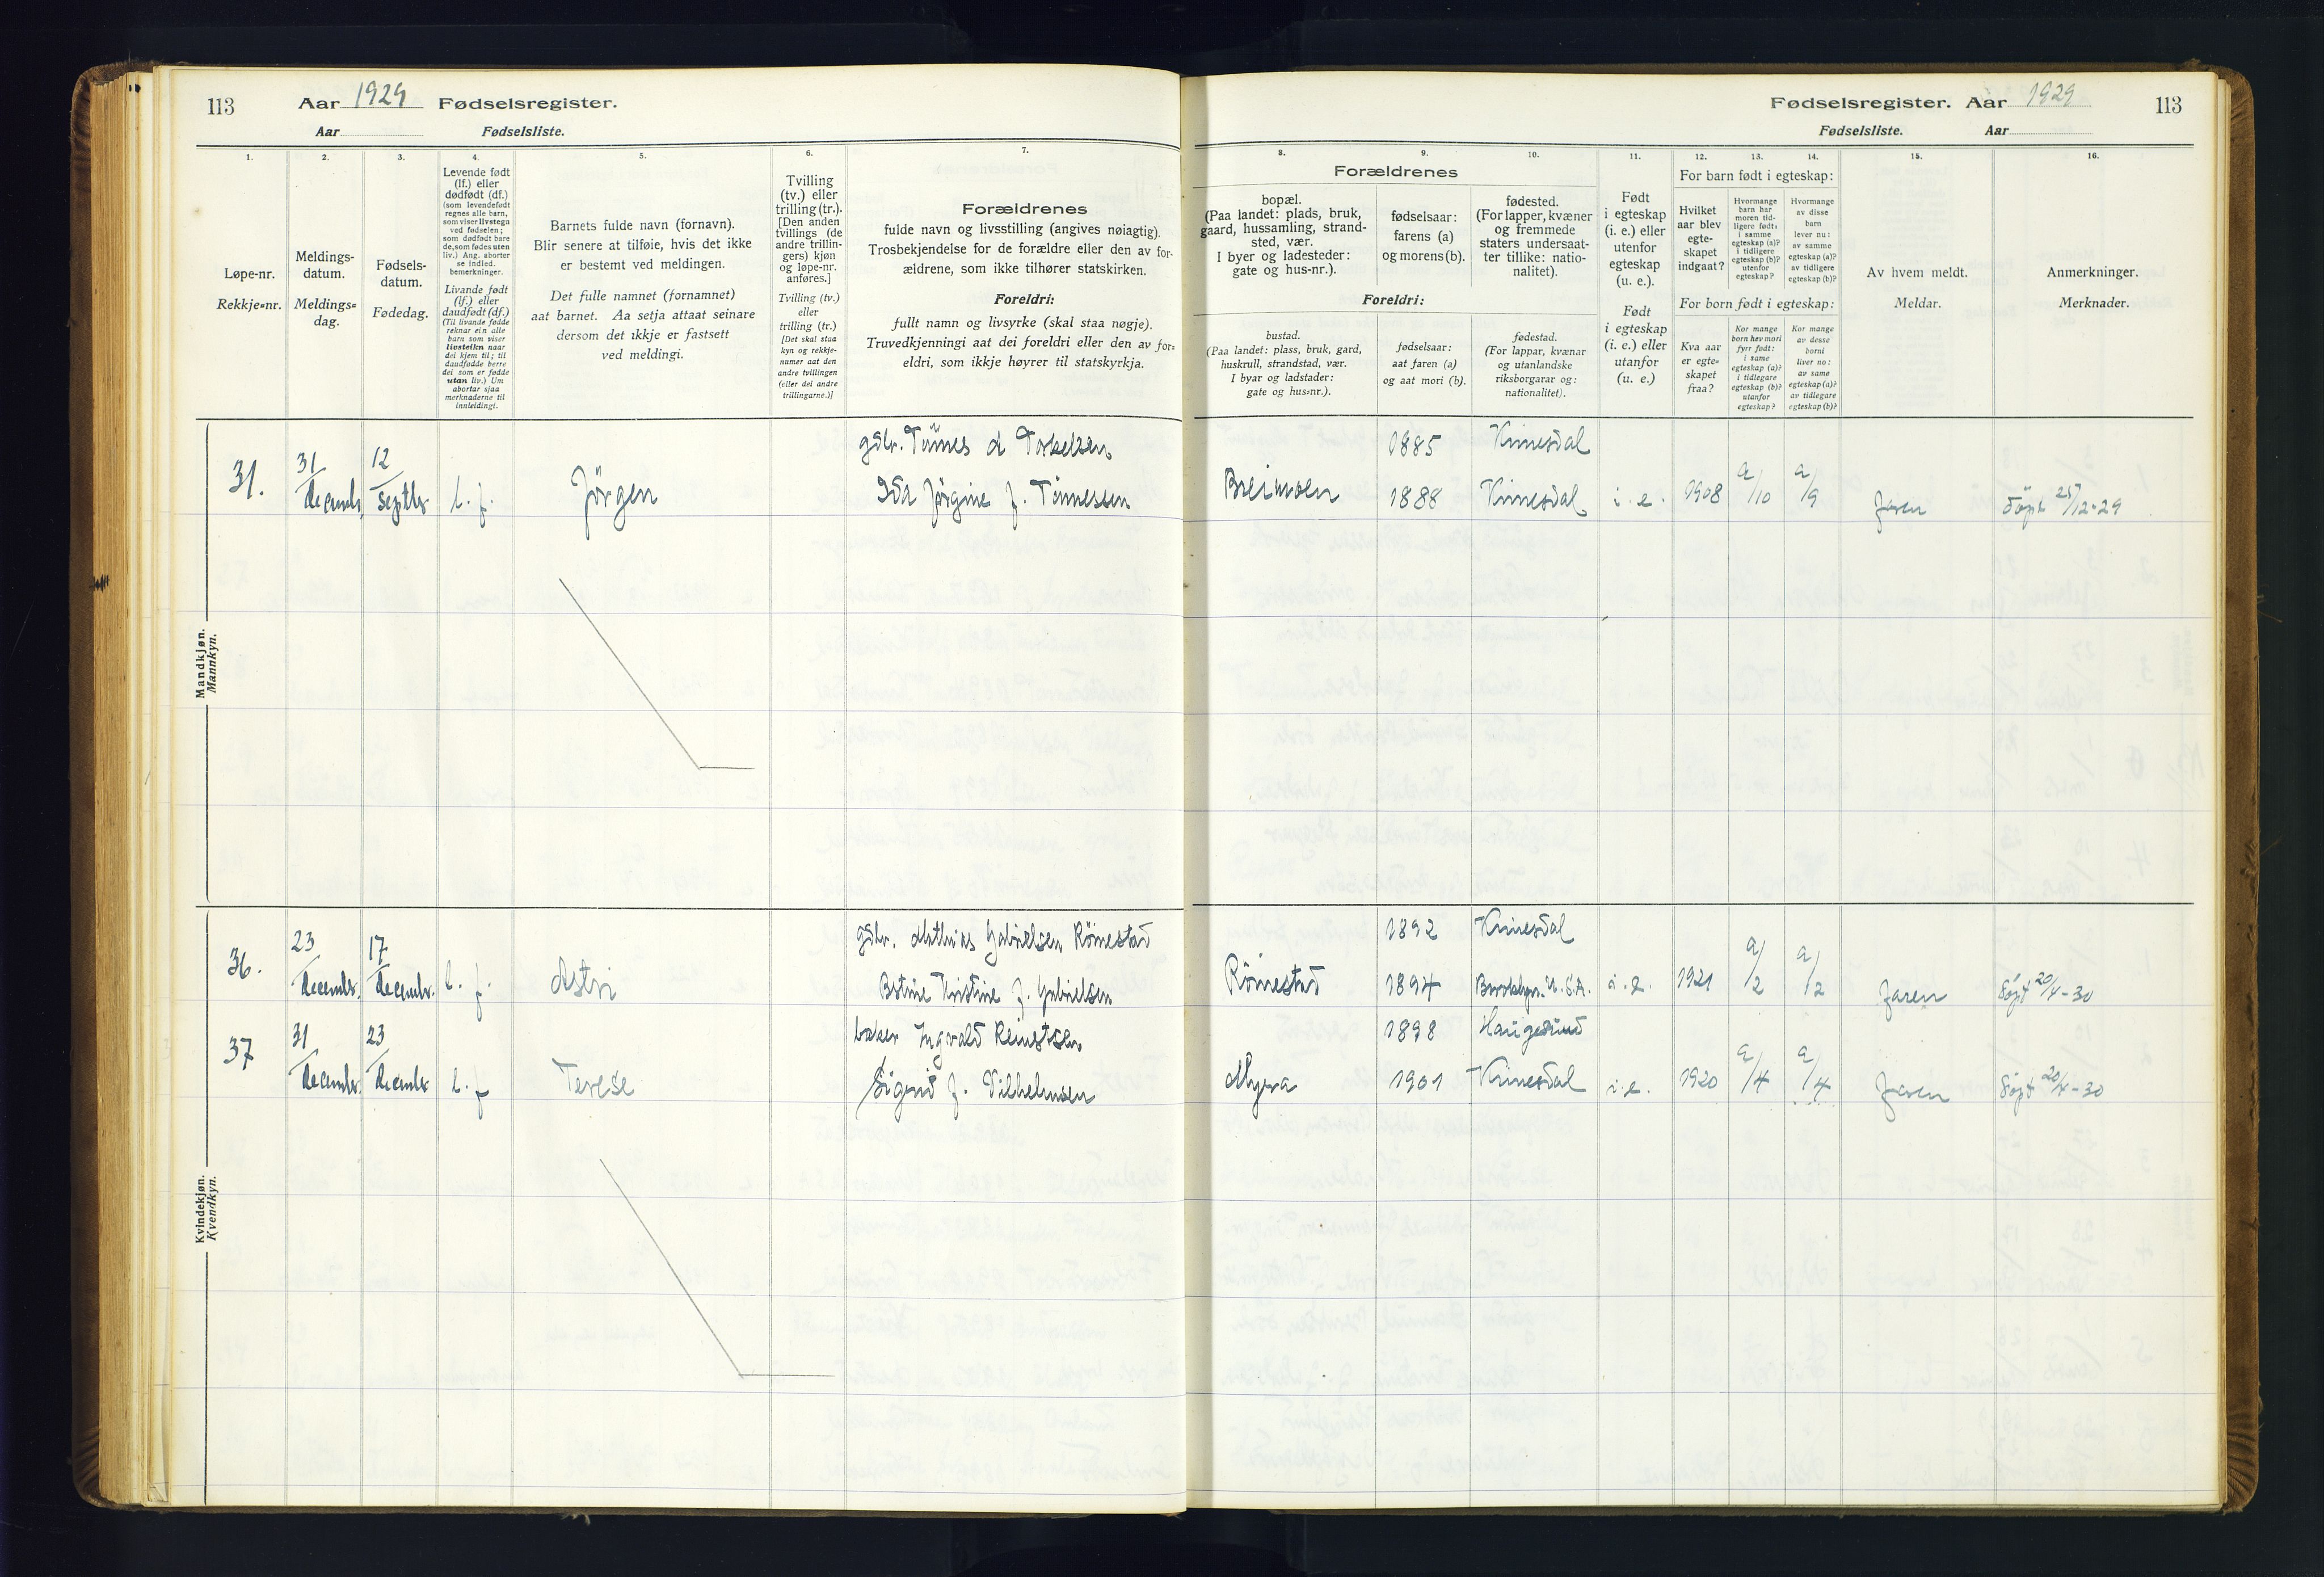 113 Aar 1929 Fødselsregister.
Aar Fødselsliste.
1. 2. 3. 4. 5. 6. 7.
Løpe-nr.
Rekkje-nr.
Meldings-
datum.
Meldings-
dag.
Fødsels-
datum.
Fødedag.
Levende født
(lf.) eller
dødfødt (df.)
(som levendefødt
regnes alle barn,
som viser livstegn
ved fødselen;
som dødfødt bare
de, som fødes uten
liv.) Ang. aborter
se indled.
bemerkninger.
Livande født
(lf.) eller
daudfødt (df.)
(Til livande fødde
reknar ein alle
barn som viser
livsteikn naar
dei kjem til; til
daudfødde berre
dei som er fødde
utan liv.) Um
abortar sjaa
merknaderne til
innleidingi.
Barnets fulde navn (fornavn).
Blir senere at tilføie, hvis det ikke
er bestemt ved meldingen.
Det fulle namnet (fornamnet)
aat barnet. Aa setja attaat seinare
dersom det ikkje er fastsett
ved meldingi.
Tvilling
(tv.) eller
trilling (tr.).
[Den anden
tvillings (de
andre trillin-
gers) kjøn
og løpe-nr.
anføres.]
Tvilling (tv.)
eller
trilling (tr.)
[Det skal staa
kyn og rekkje-
numer aat den
andre tvillingen
(eller dei andre
trillingarne.)]
Forældrenes
fulde navn og livsstilling (angives nøiagtig).
Trosbekjendelse for de forældre eller den av for-
ældrene, som ikke tilhører statskirken.
Foreldri:
fullt namn og livsyrke (skal staa nøgje).
Truvedkjenningi aat dei foreldri eller den av for-
eldri, som ikkje høyrer til statskyrkja.
Mandkjøn.
Mannkyn.
31. 31/decembr. 12/septbr. l. f. Jörgen
gdbr. Tönnes A Torkelsen
Ida Jörgine f. Tönnessen
Kvindekjøn.
Kvendkyn.
36. 23/decembr. 17/decembr. l. f. Astri
gdbr. Mathias Gabrielsen Röinestad
Kristine f. Gabrielsen
37 31/decembr. 23/decembr. l. f Terese
baker Ingvald Reinertsen
Sigrid f. Vilhelmsen
Fødselsregister. Aar 1929 113
Fødselsliste. Aar
8. 9. 10. 11. 12. 13. 14. 15. 16.
Forældrenes
bopæl.
(Paa landet: plads, bruk,
gaard, hussamling, strand-
sted, vær.
I byer og ladesteder:
gate og hus-nr.).
fødselsaar:
farens (a)
og morens (b).
fødested.
(For lapper, kvæner
og fremmede
staters undersaat-
ter tillike: natio-
nalitet).
Foreldri:
bustad.
(Paa landet: plass, bruk, gard,
huskrull, strandstad, vær.
I byar og ladstader:
gate og hus-nr.).
fødselsaar:
aat faren (a)
og aat mori (b).
fødestad.
(For lappar, kvænar
og utanlandske
riksborgarar og:
nationalitet).
Født
i egteskap
(i. e.) eller
utenfor
egteskap
(u. e.).
Født
i egteskap
(i. e.) eller
utanfor
(u. e.)
For barn født i egteskap:
Hvilket
aar blev
egte-
skapet
indgaat?
Hvormange
barn har
moren tid-
ligere født:
i samme
egteskap (a)?
i tidligere
egteskap (b)?
utenfor
egteskap?
Hvormange
av disse
barn
lever nu:
av samme
egteskap (a)?
av tidligere
egteskap (b)?
For born født i egteskap:
Kva aar
er egte-
skapet
fraa?
Kor mange
born hev mori
fyrr født:
i same
egteskap (a)?
i tidlegare
egteskap (b)?
utanfor
egteskap?
Kor mange
av desse
borni
liver no:
av same
egteskap (a)?
av tidlegare
egteskap (b)?
Av hvem meldt.
Meldar.
Anmerkninger.
Merknader.
1885 Kvinesdal
Breimoen 1888 Kvinesdal i. e. 1908 a/10 a/9 faren Döpt 25/12-29
1892 Kvinesdal
Röinestad 1894 Brooklyn. U. S. A. i. e. 1921 a/2 a/2 faren döpt 20/4-30
1898 Haugesund
Myra 1901 Kvinesdal i. e. 1920 a/4 a/4 faren döpt 20/4-30